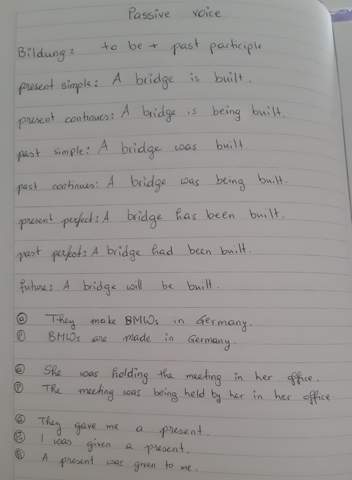 Passive voice
Bildung: to be + past participle
present simple: A bridge is built.
present continues: A bridge is being built.
past simple: A bridge was built.
past continues: A bridge was being built.
present perfect: A bridge has been built.
past perfect: A bridge had been built.
future: A bridge will be built.
They make BMWs in Germany.
BMWs are made in Germany.
She was holding the meeting in her office.
The meeting was being held by her in her office
They gave me a present.
I was given a present.
A present was given to me.